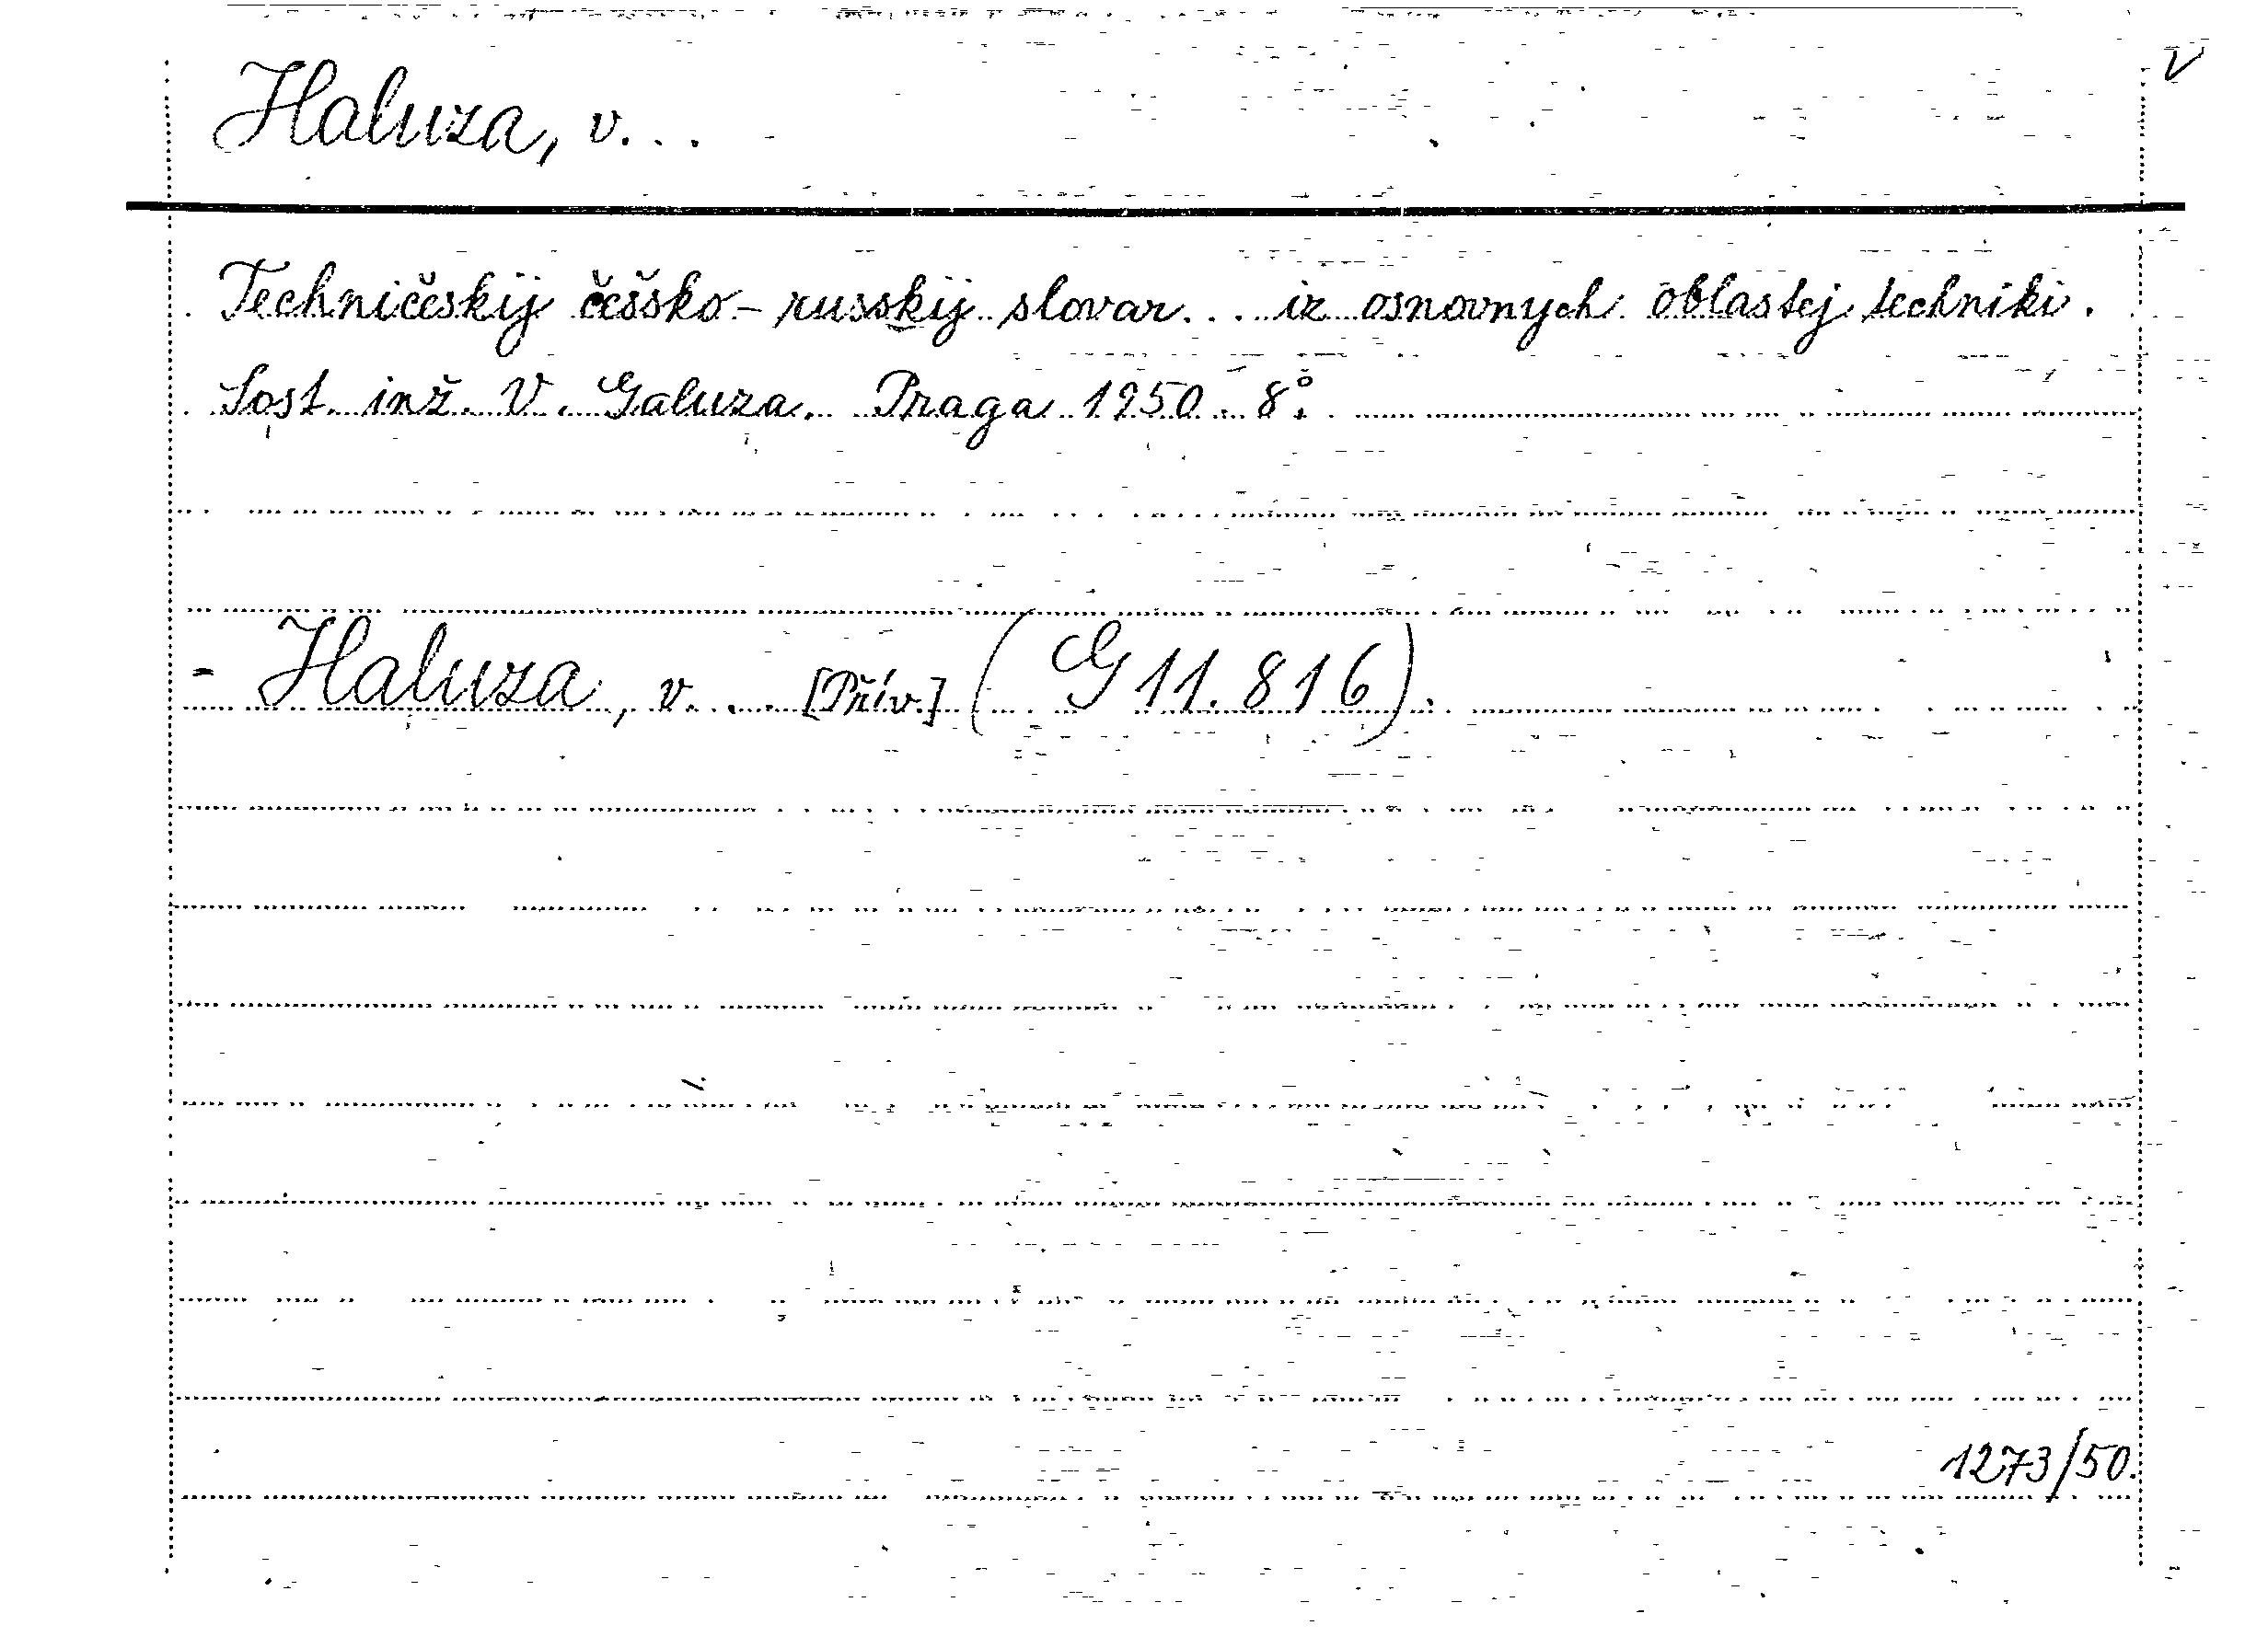 V
Haluza, v...
Techničeskij češsko-russkij slovar... iz osnovnych oblastej techniki.
Sost. inž. V. Galuza. Praga 1950. 8°.
- Haluza, v... [Přív.] (G 11.816).
1273/50.